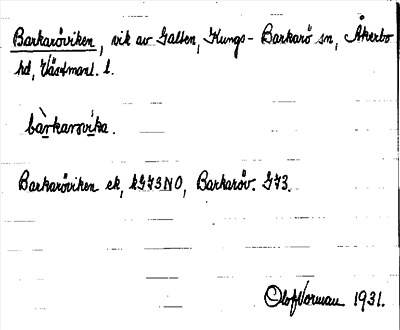 Barkaröviken, vik av Galten, Kungs-Barkarö sn, Åkerbo
hd, Västmanl. l.
bàrkarœvìka.
Barkaröviken ek, kG73NO, Barkaröv. G73.
Olof Norman 1931.